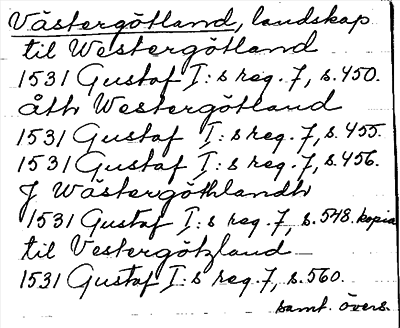 Västergötland, landskap
til Westergötland
1531 Gustaf I:s reg. 7, s. 450.
åth Westergötland
1531 Gustaf I:s reg. 7, s. 455.
1531 Gustaf I:s reg. 7, s. 456.
J Wästergöthlandh
1531 Gustaf I:s reg. 7 s. 548. kopia
til Vestergötzland
1531 Gustaf I:s reg. 7, s. 560.
samt. övers.